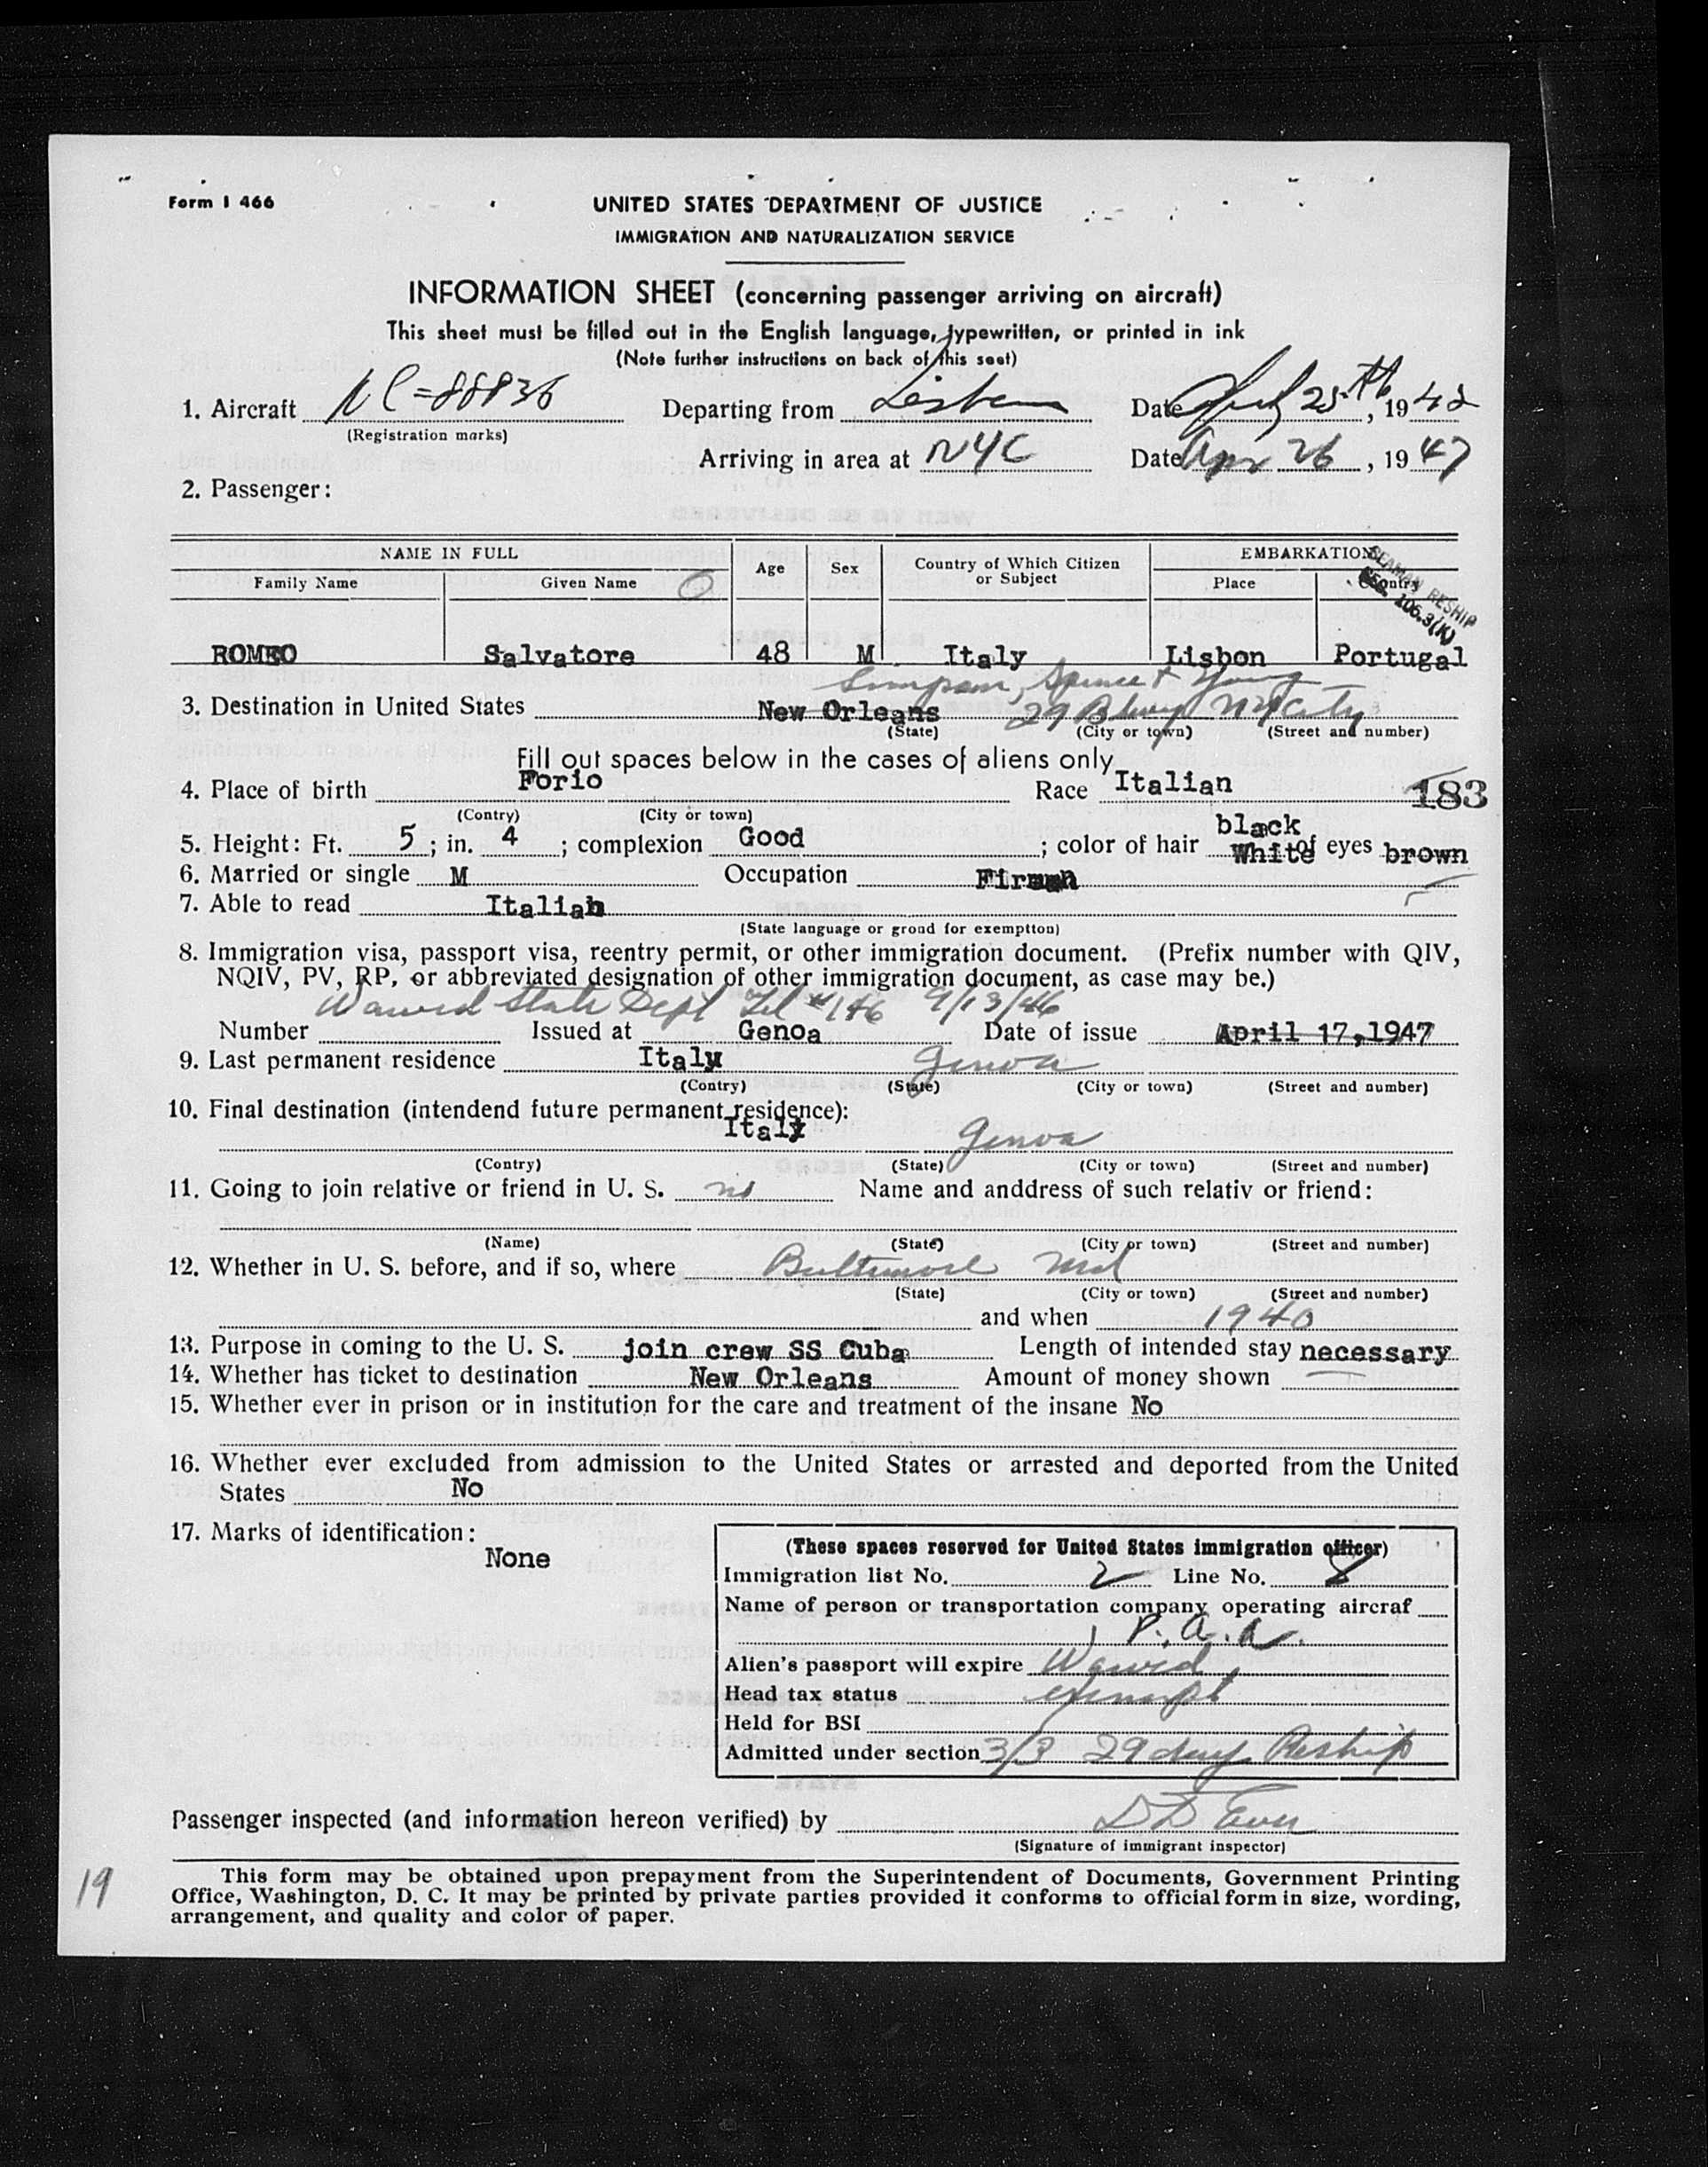 Form I 466
UNITED STATES DEPARTMENT OF JUSTICE
IMMIGRATION AND NATURALIZATION SERVICE
INFORMATION SHEET (concerning passenger arriving on aircraft)
This sheet must be filled out in the English language, typewritten, or printed in ink
(Note further instructions on back of this seet)
1. Aircraft NC=88836 Departing from Lisbon Date 25th, 19
(Registration marks)
Arriving in area at NYC Date Apr 26, 1947
2. Passenger:
NAME IN FULL Age Sex Country of Which Citizen or Subject EMBARKATION
Family Name Given Name Place Country
SEAMAN RESHIP
SEC. 106.3(K)
ROMEO Salvatore 48 M Italy Lisbon Portugal
Simpson, Spence & Young
3. Destination in United States New Orleans 29 Bdwy NY City
(State) (City or town) (Street and number)
Fill out spaces below in the cases of aliens only
4. Place of birth Forio Race Italian 183
(Contry) (City or town)
5. Height: Ft. 5; in. 4; complexion Good; color of hair black White of eyes brown
6. Married or single M Occupation Firman
7. Able to read Italian
(State language or groud for exemption)
8. Immigration visa, passport visa, reentry permit, or other immigration document. (Prefix number with QIV,
NQIV, PV, RP, or abbreviated designation of other immigration document, as case may be.)
Waived State Dept Tel #186 9/13/46
Number Issued at Genoa Date of issue April 17,1947
9. Last permanent residence Italy Genoa
(Contry) (State) (City or town) (Street and number)
10. Final destination (intendend future permanent residence):
Italy Genoa
(Contry) (State) (City or town) (Street and number)
11. Going to join relative or friend in U. S. no Name and anddress of such relativ or friend:
(Name) (State) (City or town) (Street and number)
12. Whether in U. S. before, and if so, where Baltimore Md
(State) (City or town) (Street and number)
and when 1940
13. Purpose in coming to the U. S. join crew SS Cuba Length of intended stay necessary
14. Whether has ticket to destination New Orleans Amount of money shown
15. Whether ever in prison or in institution for the care and treatment of the insane No
16. Whether ever excluded from admission to the United States or arrested and deported from the United
States No
17. Marks of identification:
None
(These spaces reserved for United States immigration officer)
Immigration list No. 2 Line No. 8
Name of person or transportation company operating aircraf
P.A.A.
Alien's passport will expire Waived
Head tax status exempt
Held for BSI
Admitted under section 3/3 29 days Reship
Passenger inspected (and information hereon verified) by
(Signature of immigrant inspector)
19
This form may be obtained upon prepayment from the Superintendent of Documents, Government Printing
Office, Washington, D. C. It may be printed by private parties provided it conforms to official form in size, wording,
arrangement, and quality and color of paper.